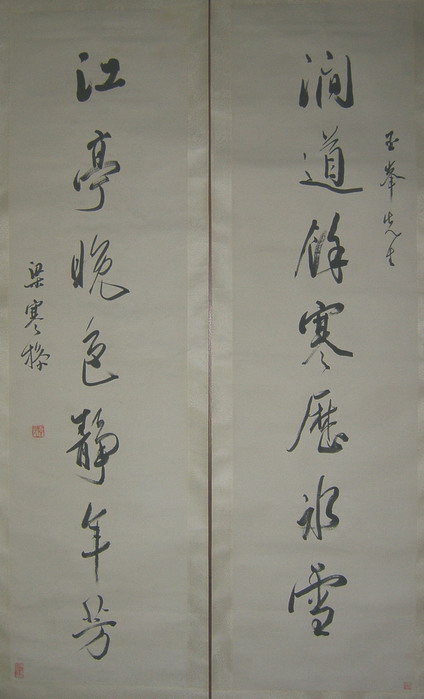 玉峯先生
澗道餘寒歷冰雪
江亭晚色靜年芳
梁寒操